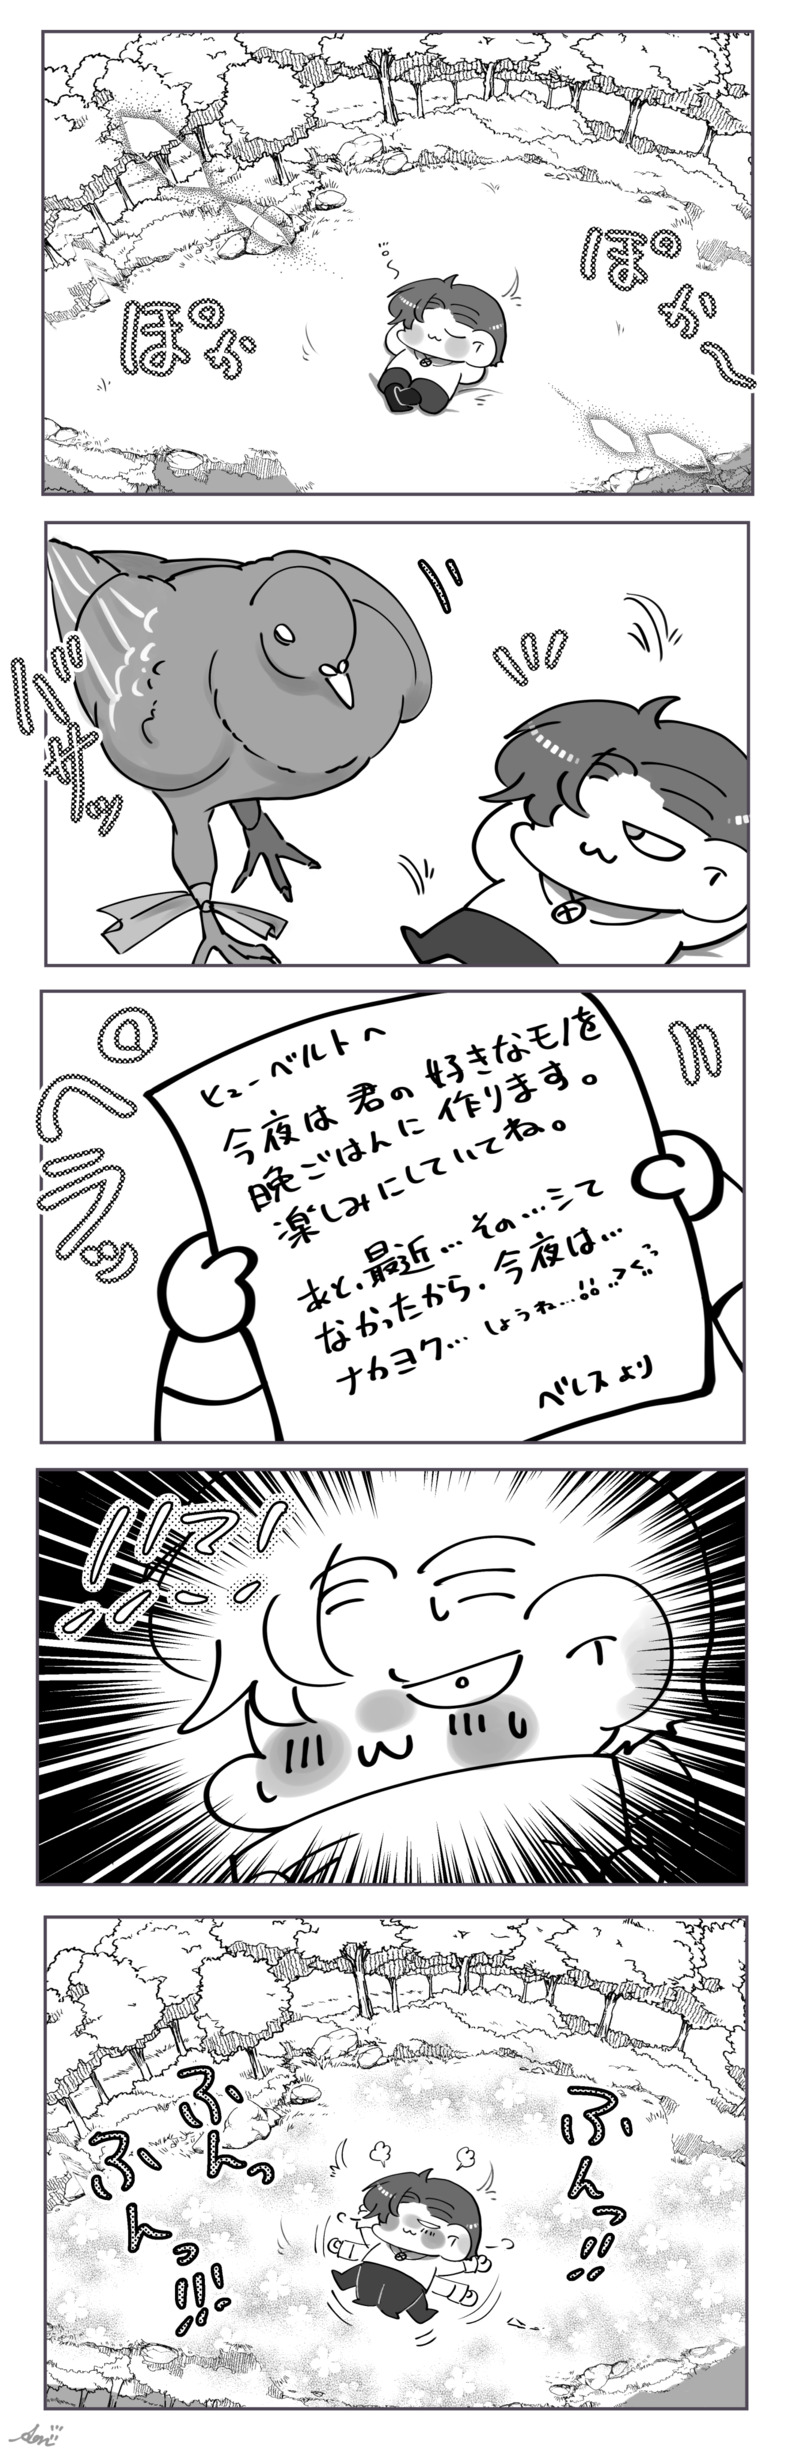 ぽか
ぽか〜
バサッ
ペラッ
ヒューベルトへ
今夜は君の好きなモノを
晩ごはんに作ります。
楽しみにしていてね。
あと、最近…その…シて
なかったから、今夜は…
ナカヨク…しょうね…!!
ベレスより
ふんっ
ふんっ!!!
ふんっ!!